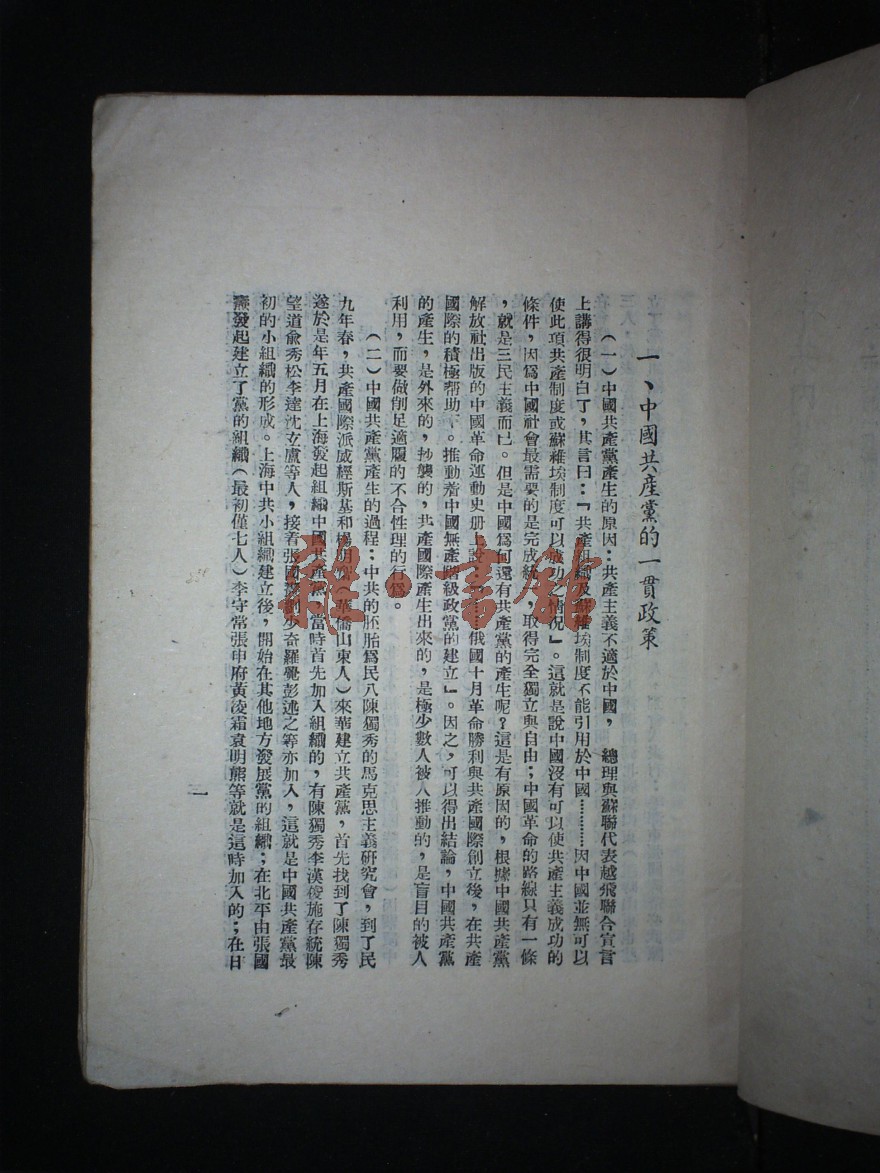 一、中國共產黨的一貫政策
（一）中國共產黨產生的原因：共產主義不適於中國， 總理與蘇聯代表越飛聯合宣言
上講得很明白了，其言曰：『共產組織及蘇維埃制度不能引用於中國…………因中國並無可以
使此項共產制度或蘇維埃制度可以成功之情況』。這就是說中國沒有可以使共產主義成功的
條件，因爲中國社會最需要的是完成統一，取得完全獨立與自由；中國革命的路線只有一條
，就是三民主義而已。但是中國爲何還有共產黨的產生呢？這是有原因的，根據中國共產黨
解放社出版的中國革命運動史册說：『……俄國十月革命勝利與共產國際創立後，在共產
國際的積極幫助下。推動着中國無產階級政黨的建立』。因之，可以得出結論，中國共產黨
的產生，是外來的，抄襲的，共產國際產生出來的，是極少數人被人推動的，是盲目的被人
利用，而要做削足適履的不合性理的行爲。
（二）中國共產黨產生的過程：中共的胚胎爲民八陳獨秀的馬克思主義研究會，到了民
九年春，共產國際派威經斯基和楊明齋（華僑山東人）來華建立共產黨，首先找到了陳獨秀
遂於是年五月在上海發起組織中國共產黨，當時首先加入組織的，有陳獨秀李漢俊施存統陳
望道俞秀松李達沈玄廬等人，接着張國燾劉少奇羅覺彭述之等亦加入，這就是中國共產黨最
初的小組織的形成。上海中共小組織建立後，開始在其他地方發展黨的組織；在北平由張國
燾發起建立了黨的組織（最初僅七人）李守常張申府黃凌霜袁明熊等就是這時加入的；在日
一
雜·書館